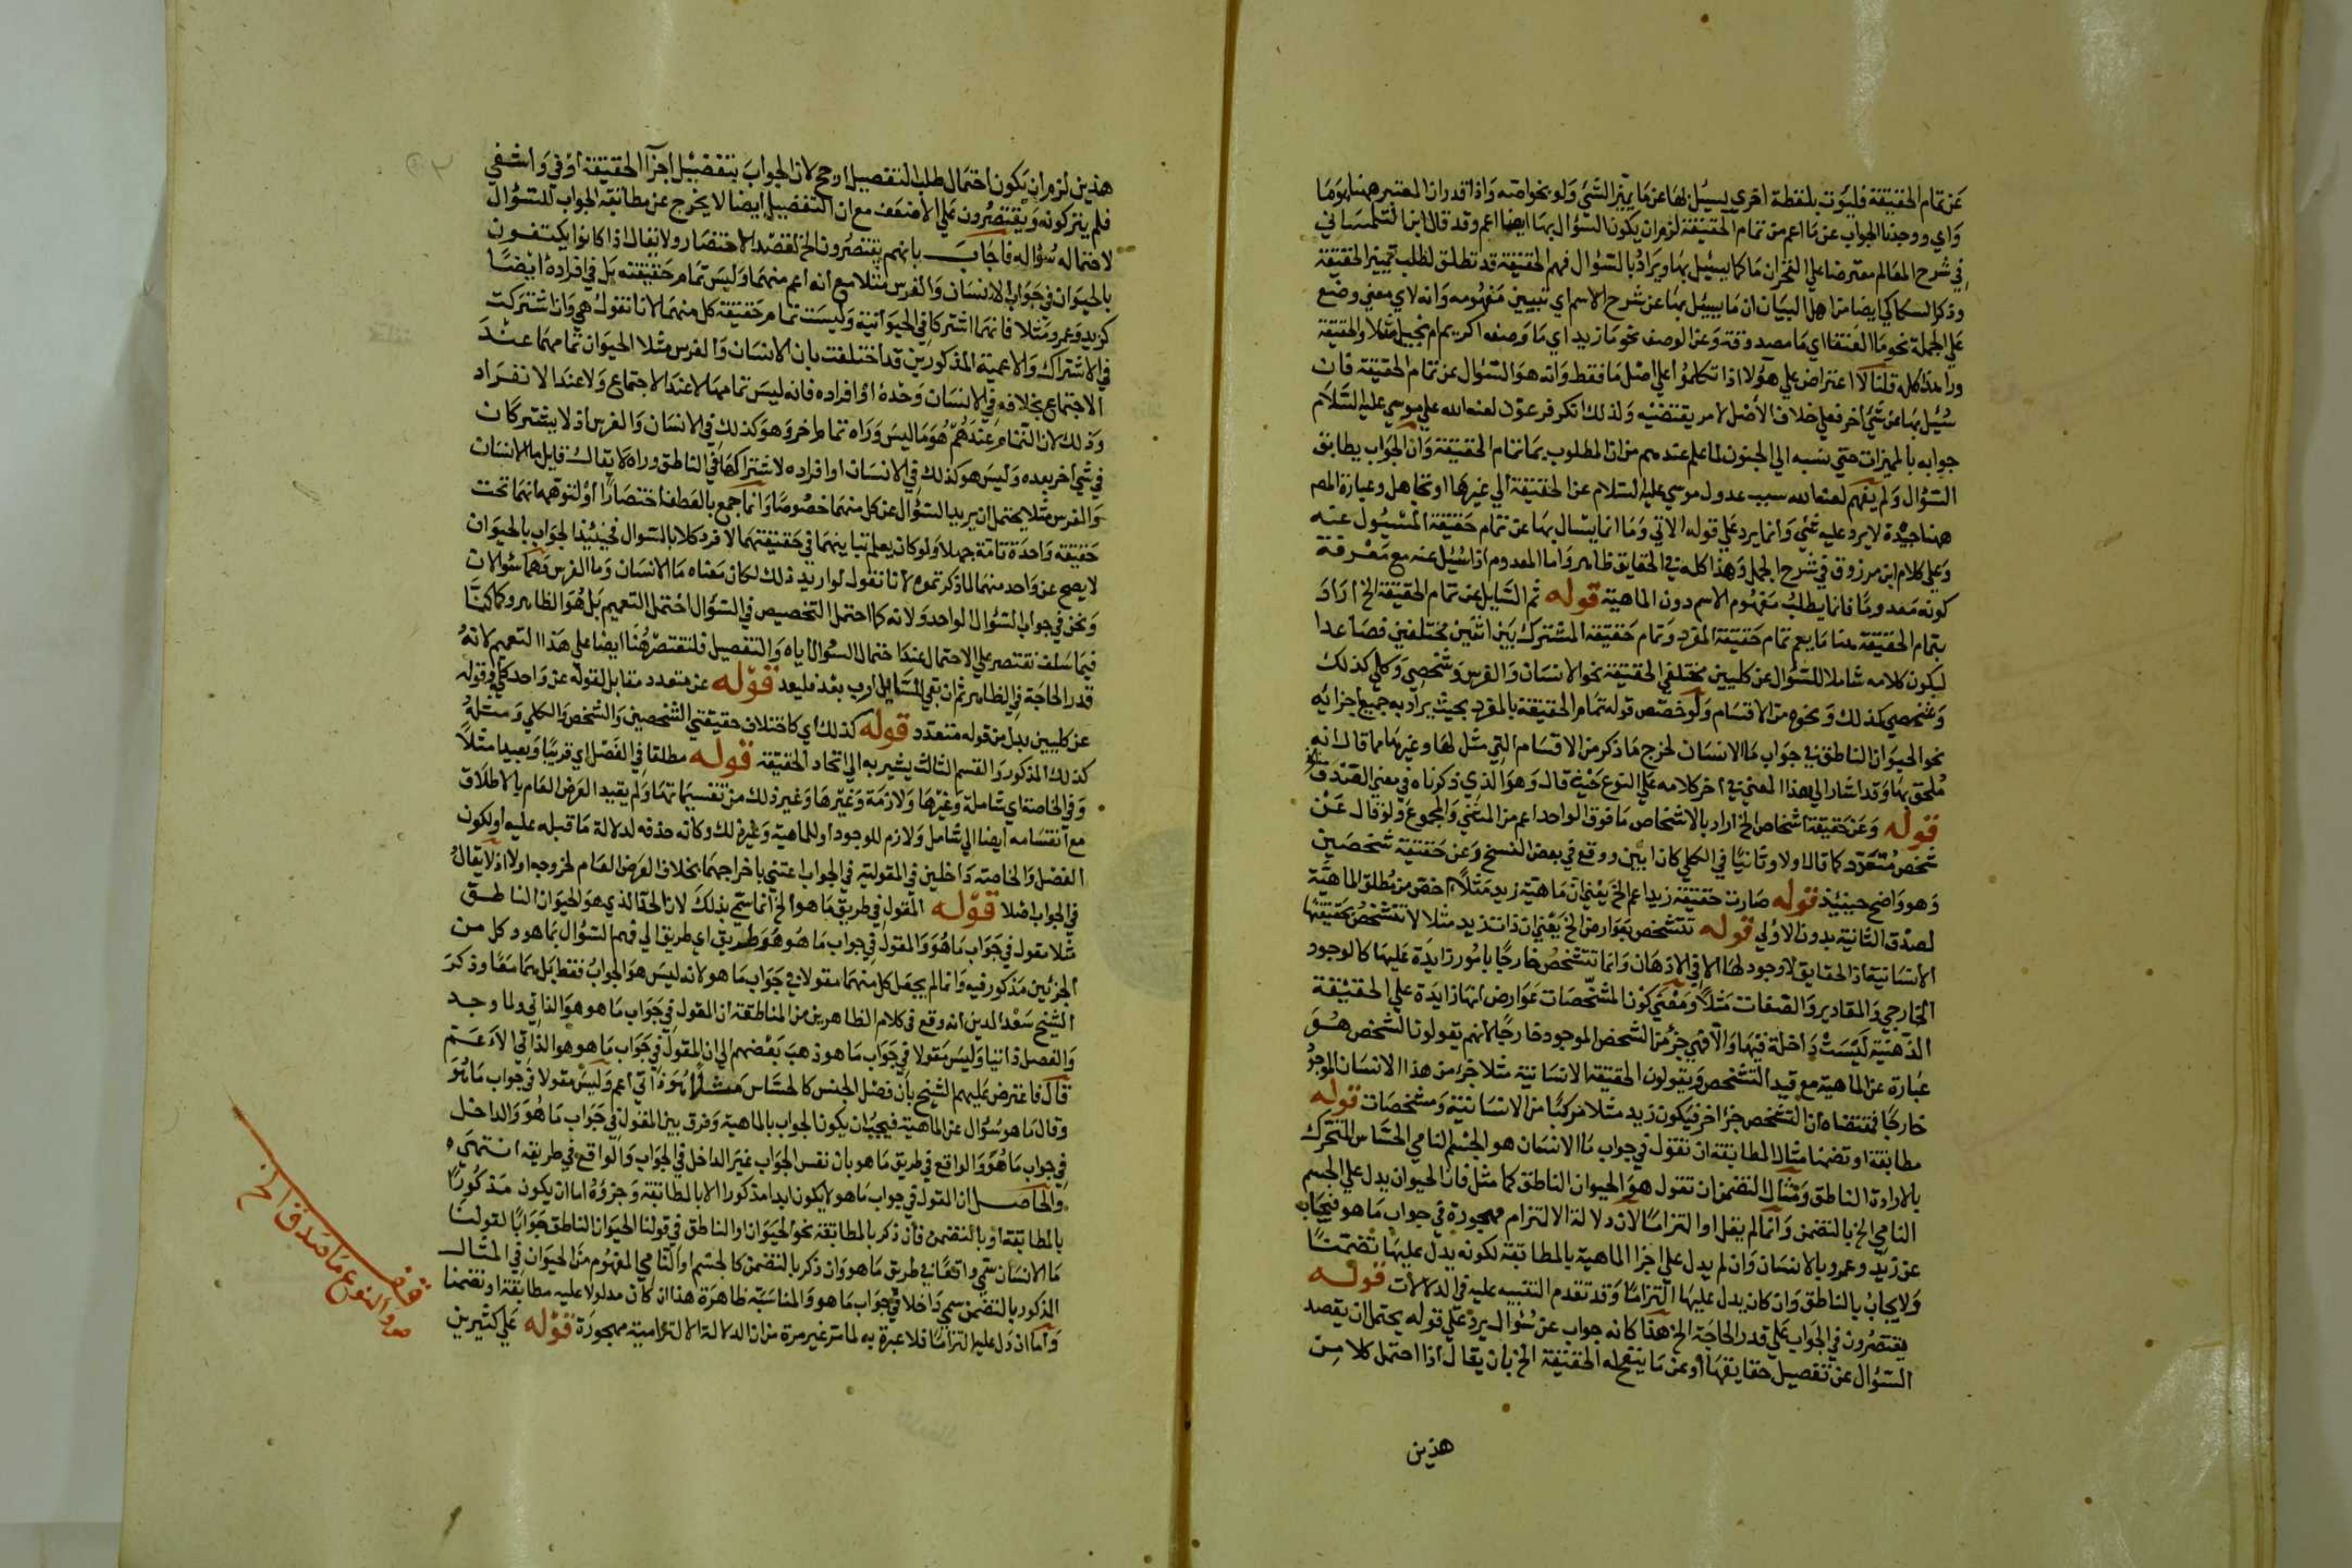 عن تمام الحقيقة فليؤت بلفظة اخرى ليسئل بها عن ما يميز الشئ ولو بخواصه واذا قدر ان المعتبر هنا هو ما
واي ووجدنا الجواب عن ما اعم من تمام الحقيقة لزم ان يكون السؤال بها ايضا اعم وقد قال ابن التلمساني
في شرح المعالم معترضا على الفخر ان ما كما يسئل بها ويراد بالسؤال فهم الحقيقة قد تطلق لطلب تمييز الحقيقة
وذكر السكاكي ايضا من اهل البيان ان ما يسئل بها عن شرح الاسم اي تبيين مفهومه وانه لاي معني وضع
على الجملة نحو ما العنقا اي ما مصدوقه وعن الوصف نحو ما زيد اي ما وصفه اكريم ام بخيل مثلا والحقيقة
ورا هذا كله قلنا لا اعتراض علي هؤلا اذا تكلموا علي اصل ما فقط وانه هو السؤال عن تمام الحقيقة فان
سئل بها عن شئ اخر فعلي خلاف الاصل لامر يقتضيه ولذلك انكر فرعون لعنه الله علي موسي عليه السلام
جوابه بالمميزات حتي نسبه الي الجنون لما علم عندهم من ان المطلوب بما تمام الحقيقة وان الجواب يطابق
السؤال ولم يفهم لعنه الله سبب عدول موسي عليه السلام عن الحقيقة الي غيرها او تجاهل وعبارة المص
هنا جيدة لا يرد عليه شئ وانما يرد علي قوله الاتي وما انما يسال بها عن تمام حقيقة المسئول عنه
وعلي كلام ابن مرزوق في شرح الجمل وهذا كله في الحقايق ظاهر واما المعدوم اذا سئل عنه مع معرفة
كونه معدوما فانما يطلب مفهوم الاسم دون الماهية قوله ثم السايل عن تمام الحقيقة الخ اراد
بتمام الحقيقة هنا ما يعم تمام حقيقة المفرد وتمام حقيقة المشترك بين اثنين مختلفين فصاعدا
ليكون كلامه شاملا للسؤال عن كليين مختلفي الحقيقة نحو الانسان والفرس وشخصي وكلي كذلك
وشخصي كذلك ونحوه من الاقسام ولو خصص قوله تمام الحقيقة بالمفرد بحيث يراد به جميع اجزائه
نحو الحيوان الناطق في جواب ما الانسان لخرج ما ذكر من الاقسام التي مثل لها وغيرها مما قال انه
ملحق بها وقد اشار الي هذا المعني في اخر كلامه علي النوع حيث قال وهو الذي ذكرناه في معني الصدق
قوله وعن حقيقة اشخاص الخ اراد بالاشخاص ما فوق الواحد اعم من المثني والمجموع ولو قال عن
شخص متعدد كما قال اولا وثانيا في الكلي كان ابين ووقع في بعض النسخ وعن حقيقة شخصين
وهو واضح حينئذ قوله صارت حقيقة زيد اعم الخ يعني ان ماهية زيد مثلا اخص من مطلق الماهية
لصدق الثانية بدون الاولي قوله تتشخص بعوارض الخ يعني ان ذات زيد مثلا لا تتشخص بحقيقتها
الانسانية اذ الحقايق لا وجود لها الا في الاذهان وانما تتشخص خارجا بامور زايدة عليها كالوجود
الخارجي والمقادير والصفات مثلا ومعني كون المشخصات عوارض انها زايدة علي الحقيقة
الذهنية ليست داخلة فيها والا فهي جزء من الشخص الموجود خارجا لانهم يقولون الشخص هو
عبارة عن الماهية مع قيد التشخص ويقولون الحقيقة الانسانية مثلا جزء من هذا الانسان الموجود
خارجا فمقتضاه ان التشخص جزء اخر فيكون زيد مثلا مركبا من الانسانية ومشخصات قوله
مطابقة او تضمنا مثال المطابقة ان تقول في جواب ما الانسان هو الجسم النامي الحساس المتحرك
بالارادة الناطق ومثال التضمن ان تقول هو الحيوان الناطق كما مثل فان الحيوان يدل علي الجسم
النامي الخ بالتضمن وانما لم يقل او التزاما لان دلالة الالتزام مهجورة في جواب ما هو فيجاب
عن زيد وعمرو بالانسان وان لم يدل علي اجزا الماهية بالمطابقة لكونه يدل عليها تضمنا
ولا يجاب بالناطق وان كان يدل عليها التزاما وقد تقدم التنبيه عليه في الدلالات قوله
يقتصرون في الجواب علي قدر الحاجة الخ هذا كانه جواب عن سؤال يرد علي قوله يحتمل ان يقصد
السؤال عن تفصيل حقايقها او عن ما الحقيقة الخ بان يقال اذا احتمل كلا من
هذين
هذين لزم ان يكون احتمال طلب التفصيل ارجح لان الجواب بتفصيل اجزآ الحقيقة اوفي واشفي
فلم يتركونه ويقتصرون علي الاضعف مع ان التفصيل ايضا لا يخرج عن مطابقة الجواب للسؤال
لاحتماله سؤاله فاجاب بانهم يقتصرون الخ لقصد الاختصار ولا يقال اذا كانوا يكتفون
بالحيوان في جواب الانسان والفرس مثلا مع انه اعم منهما وليس تمام حقيقته بل في افراده ايضا
كزيد وعمرو مثلا فانهما اشتركا في الحيوانية وليست تمام حقيقة كل منهما لانا نقول هي وان اشتركت
في الاشتراك والاعمية المذكورين قد اختلفت بان الانسان والفرس مثلا الحيوان تمامهما عند
الاجتماع بخلافه في الانسان وحده او افراده فانه ليس تمامها لا عند الاجتماع ولا عند الانفراد
وذلك لان التمام عندهم هو ما ليس وراه تمام اخر وهو كذلك في الانسان والفرس اذ لا يشتركان
في شئ اخر بعده وليس هو كذلك في الانسان او افراده لاشتراكها في الناطق وراه لا يقال قايل ما الانسان
والفرس مثلا يحتمل ان يريد السؤال عن كل منهما خصوصا وانما جمع بالعطف اختصارا او لتوهمه انهما تحت
حقيقة واحدة تامة جهلا ولو كان يعلم تباينهما في حقيقتهما لافرد كلا بالسوال فحينئذ الجواب بالحيوان
لا يصح عن واحد منهما لما ذكرتموه لانا نقول لو اريد ذلك لكان معناه ما الانسان وما الفرس وهما سؤالان
ونحن في جواب السؤال الواحد ولانه كما احتمل التخصيص في السؤال احتمل التعميم بل هو الظاهر وكما كنا
فيما سلف نقتصر علي الاحتمال عند احتمال السوال اياه والتفصيل فلنقتصر هنا ايضا علي هذا التعميم لانه
قدر الحاجة في الظاهر ثم ان بقي للسايل ارب بعد فليعد قوله عن متعدد مقابل لقوله عن واحد كلي وقوله
عن كليين بدل من قوله متعدد قوله كذلك اي كاختلاف حقيقتي الشخصين والشخص والكلي ومثله
كذلك المذكور والقسم الثالث يشير به الي اتحاد الحقيقة قوله مطلقا في الفصل اي قريبا وبعيدا مثلا
وفي الخاصة اي شاملة وغيرها ولازمة وغيرها وغير ذلك من تقسيماتها ولم يقيد العرض العام بالاطلاق
مع انقسامه ايضا الي شامل ولازم للوجود او للماهية وغير ذلك وكانه حذفه لدلالة ما قبله عليه او لكون
الفصل والخاصة داخلين في المقولية في الجواب اعتني باخراجهما بخلاف العرض العام لخروجه اولا اذ لا يقال
في الجواب اصلا قوله المقول في طريق ما هو الخ انما سمي بذلك لان الحد الذي هو الحيوان الناطق
مثلا مقول في جواب ما هو والمقول في جواب ما هو هو طريق اي طريق الي فهم السؤال بما هو وكل من
الجزئين مذكور فيه وانما لم يجعل كل منهما مقولا في جواب ما هو لانه ليس هو الجواب فقط بل بهما معا وذكر
الشيخ سعد الدين انه وقع في كلام الظاهريين من المناطقة ان المقول في جواب ما هو هو الذاتي ولما وجد
والفصل ذاتيا وليس مقولا في جواب ما هو ذهب بعضهم الي ان المقول في جواب ما هو هو الذاتي الاعم
قال فاعترض عليهم الشيخ بان فصل الجنس كالحساس مثلا هو ذاتي اعم وليس مقولا في جواب ما هو
وقال ما هو سؤال عن الماهية فيجب ان يكون الجواب بالماهية وفرق بين المقول في جواب ما هو والداخل
في جواب ما هو والواقع في طريق ما هو بان نفس الجواب غير الداخل في الجواب والواقع في طريقه انتهي ه
والحاصل ان المقول في جواب ما هو لا يكون ابدا مذكورا الا بالمطابقة وجزؤه اما ان يكون مذكورا
بالمطابقة او بالتضمن فان ذكر بالمطابقة نحو الحيوان او الناطق في قولنا الحيوان الناطق جوابا لقولنا
ما الانسان سمي واقعا في طريق ما هو وان ذكر بالتضمن كالجسم او النامي المفهوم من الحيوان في المثال
المذكور بالتضمن سمي داخلا في جواب ما هو والمناسبة ظاهرة هذا ان كان مدلولا عليه مطابقة او تضمنا
واما ان دل عليه التزاما فلا عبرة به لما مر غير مرة من ان الدلالة الالتزامية مهجورة قوله علي كثيرين